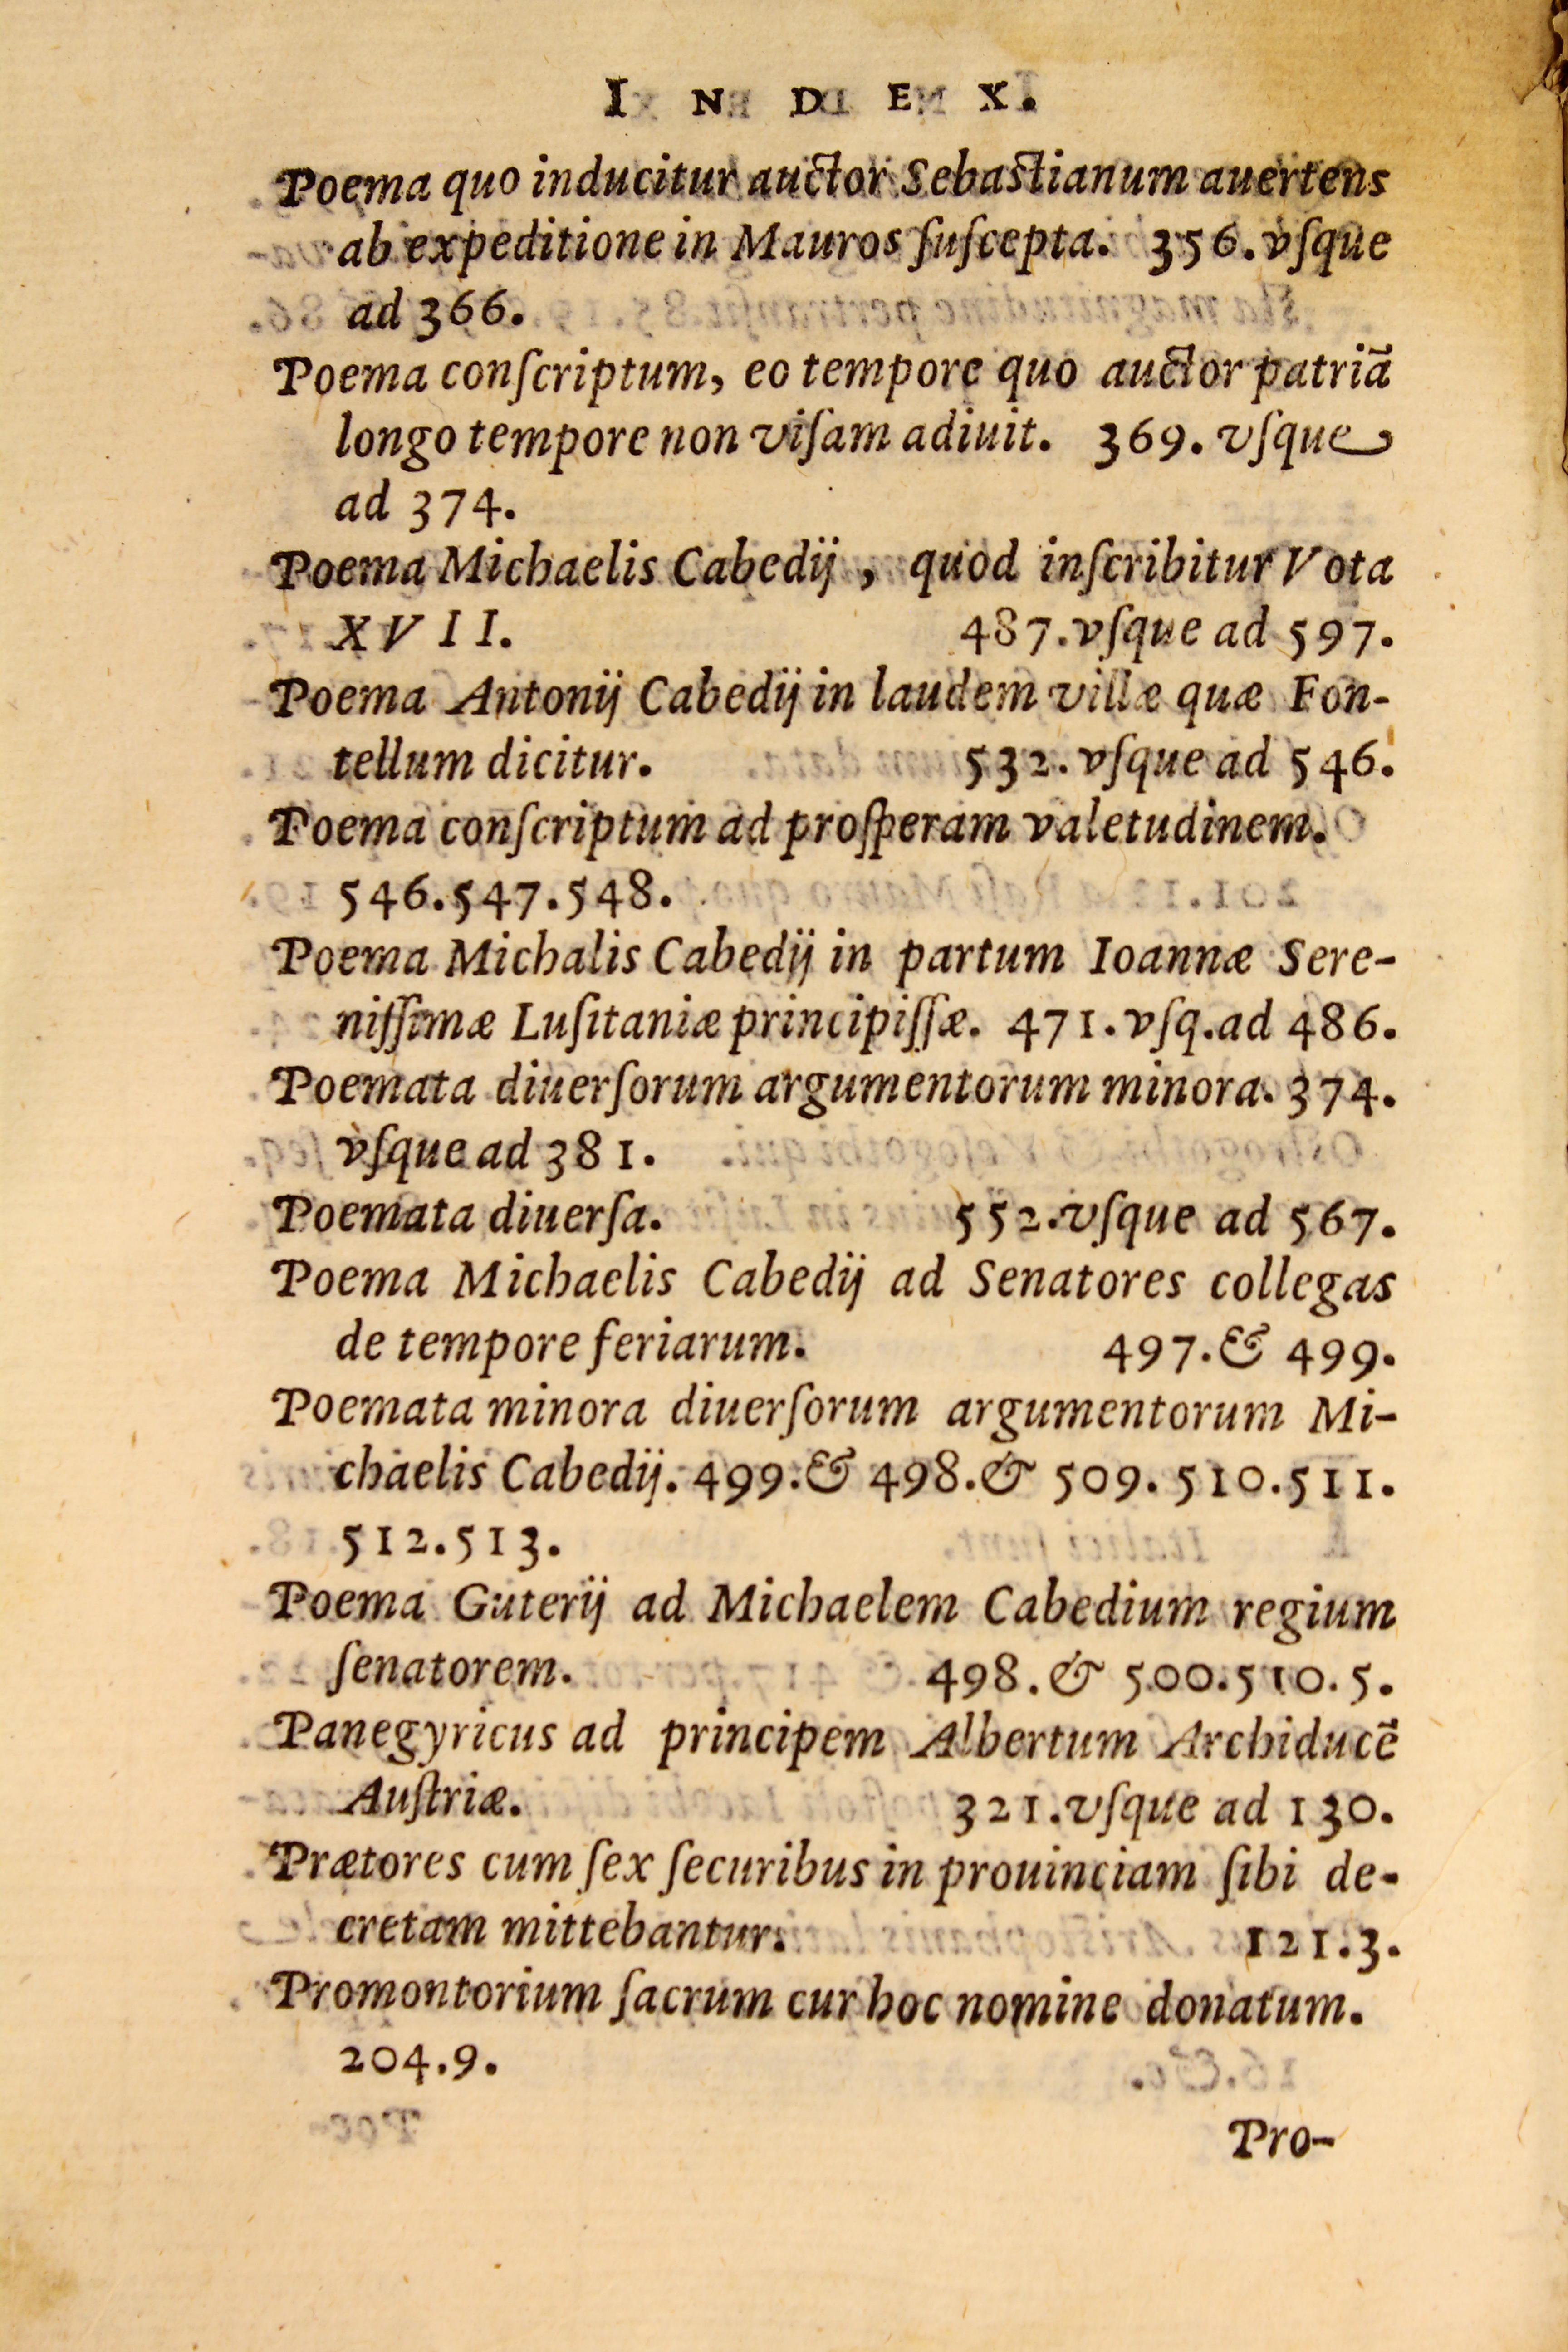 I N D E X.
Poema quo inducitur auctor Sebastianum auertens
ab expeditione in Mauros ſuſcepta. 356. vſque
ad 366.
Poema conſcriptum, eo tempore quo auctor patriã
longo tempore non viſam adiuit. 369. vſque
ad 374.
Poema Michaelis Cabedij, quod inſcribitur Vota
XVII. 487. vſque ad 597.
Poema Antonij Cabedij in laudem villæ quæ Fon-
tellum dicitur. 532. vſque ad 546.
Poema conſcriptum ad proſperam valetudinem.
546.547.548.
Poema Michalis Cabedij in partum Ioannæ Sere-
niſſimæ Luſitaniæ principiſſæ. 471. vſq. ad 486.
Poemata diuerſorum argumentorum minora. 374.
vſque ad 381.
Poemata diuerſa. 552. vſque ad 567.
Poema Michaelis Cabedij ad Senatores collegas
de tempore feriarum. 497. & 499.
Poemata minora diuerſorum argumentorum Mi-
chaelis Cabedij. 499. & 498. & 509. 510. 511.
512.513.
Poema Guterij ad Michaelem Cabedium regium
ſenatorem. 498. & 500.510.5.
Panegyricus ad principem Albertum Archiducẽ
Auſtriæ. 321. vſque ad 130.
Prætores cum ſex ſecuribus in prouinciam ſibi de-
cretam mittebantur. 121.3.
Promontorium ſacrum cur hoc nomine donatum.
204.9.
Pro-